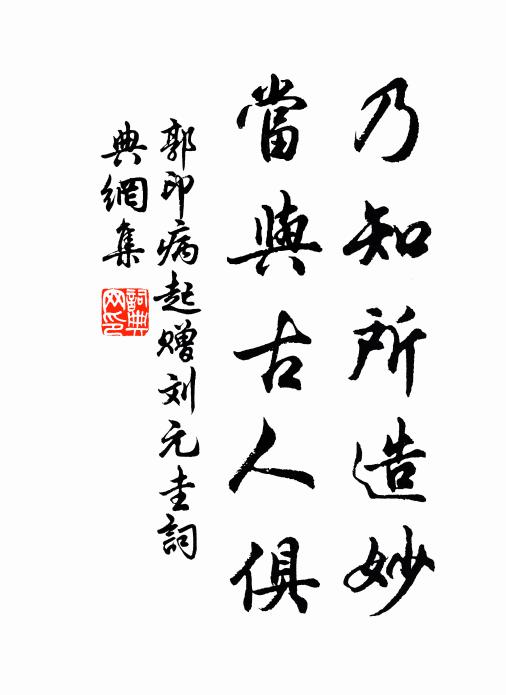 乃知所造妙
當與古人俱
郭印病起赠刘元圭詞
典網集
詞典網印